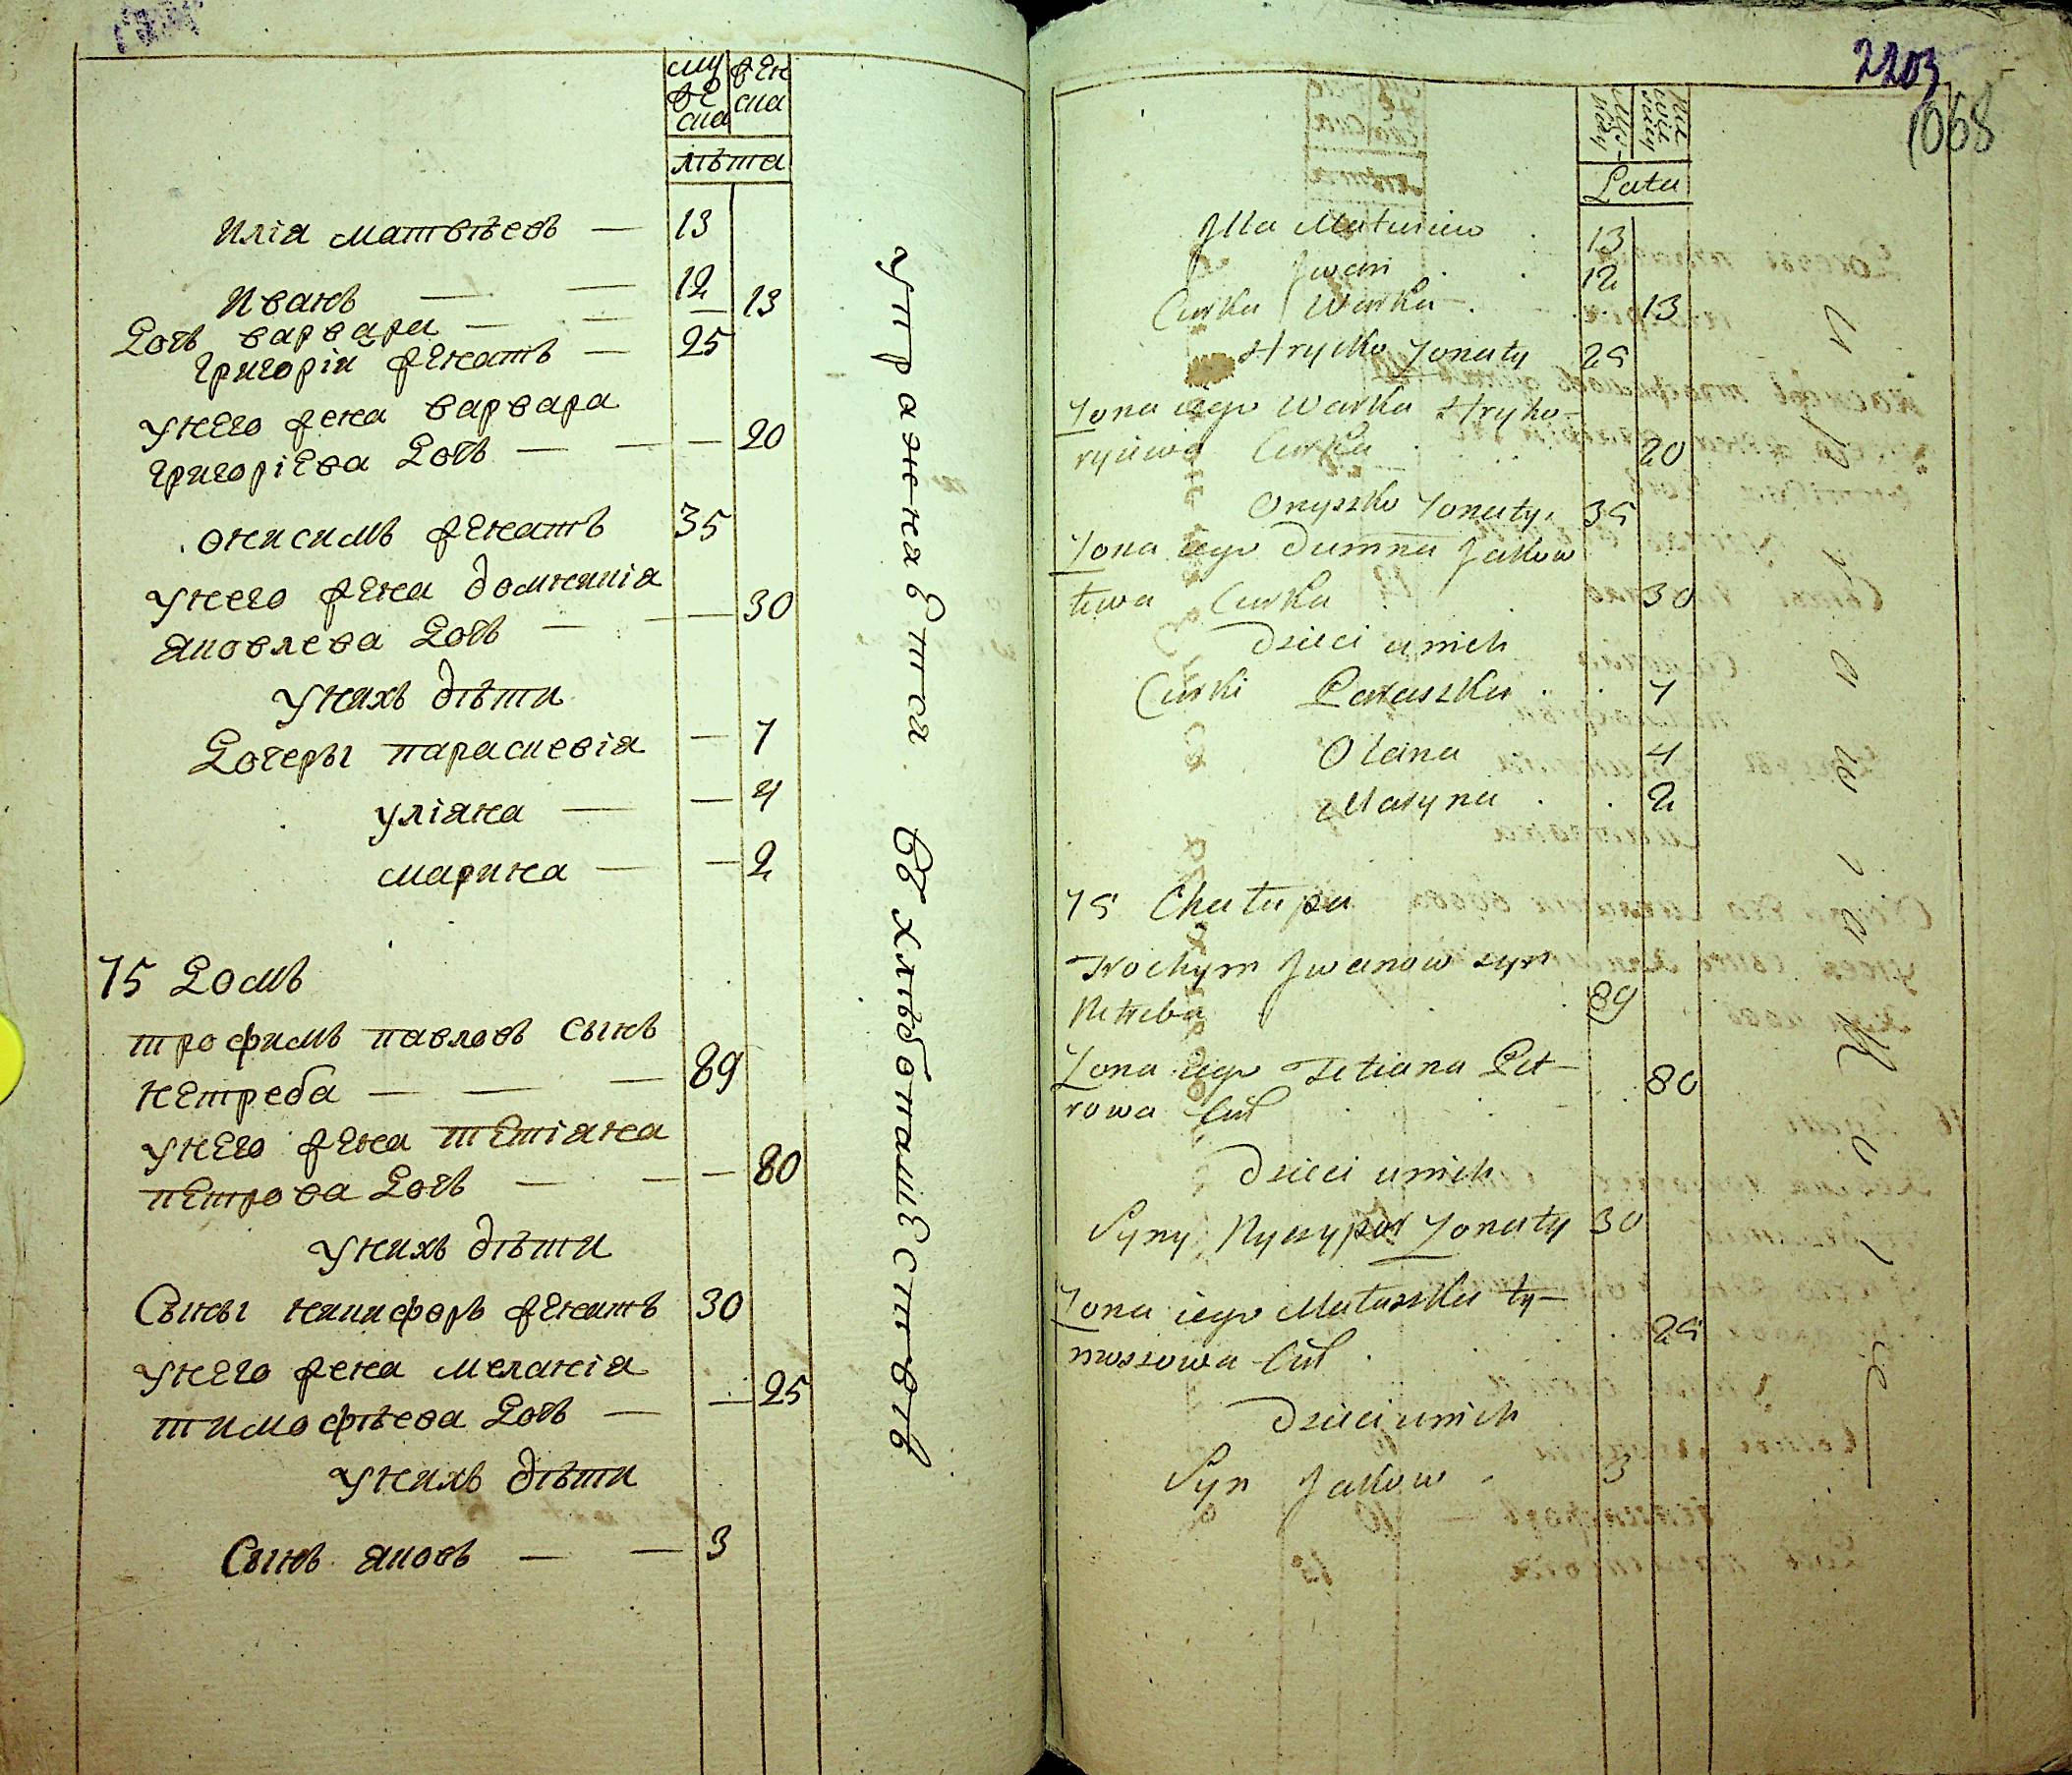 муже
ска
жен
ска
лѣта
илiя матвѣевъ — 13
иванъ — — 12
Дочь варвара — — — 13
григорiи женатъ — 25
унего жена варвара
григорiева Дочь — — — 20
онисимъ женатъ 35
унего жена домникiя
яковлева Дочь — — — 30
унихъ дѣти
Дочеры параскевiя — 7
улiяна — — 4
марина — — 2
75 Домъ
трофимъ павловъ сынъ
нетреба — — — 89
унего жена тетiяна
петрова Дочь — — — 80
унихъ дѣти
Сыны никифоръ женатъ 30
унего жена меланiя
тимофѣева Дочь — — 25
унихъ дѣти
Сынъ яковъ — — 3
упражняется въ хлѣбопашествѣ
2203
1068
Lata
Illa Matwiiew . 13
Iwan . . 12
Curka Warka . . . 13
Hryćko żonaty 25
Żona iego Warka Hryho-
ryiewa Curka . . 20
Onyszko żonaty. 35
Żona iego Dumna Jakow
lewa Curka . . 30
Dzieci u nich
Curki Paraszka . . 7
Olana 4
Maryna . . 2
75 Chałupa
Trochym Iwanow syn
Netreba . . 89
Żona iego Tetiana Pet-
rowa Cur . . . 80
Dzieci u nich
Syny Nyczypor żonaty 30
Żona iego Małaszka ty-
moszowa Cur . . 25
Dzieci u nich
Syn Jakow . 3